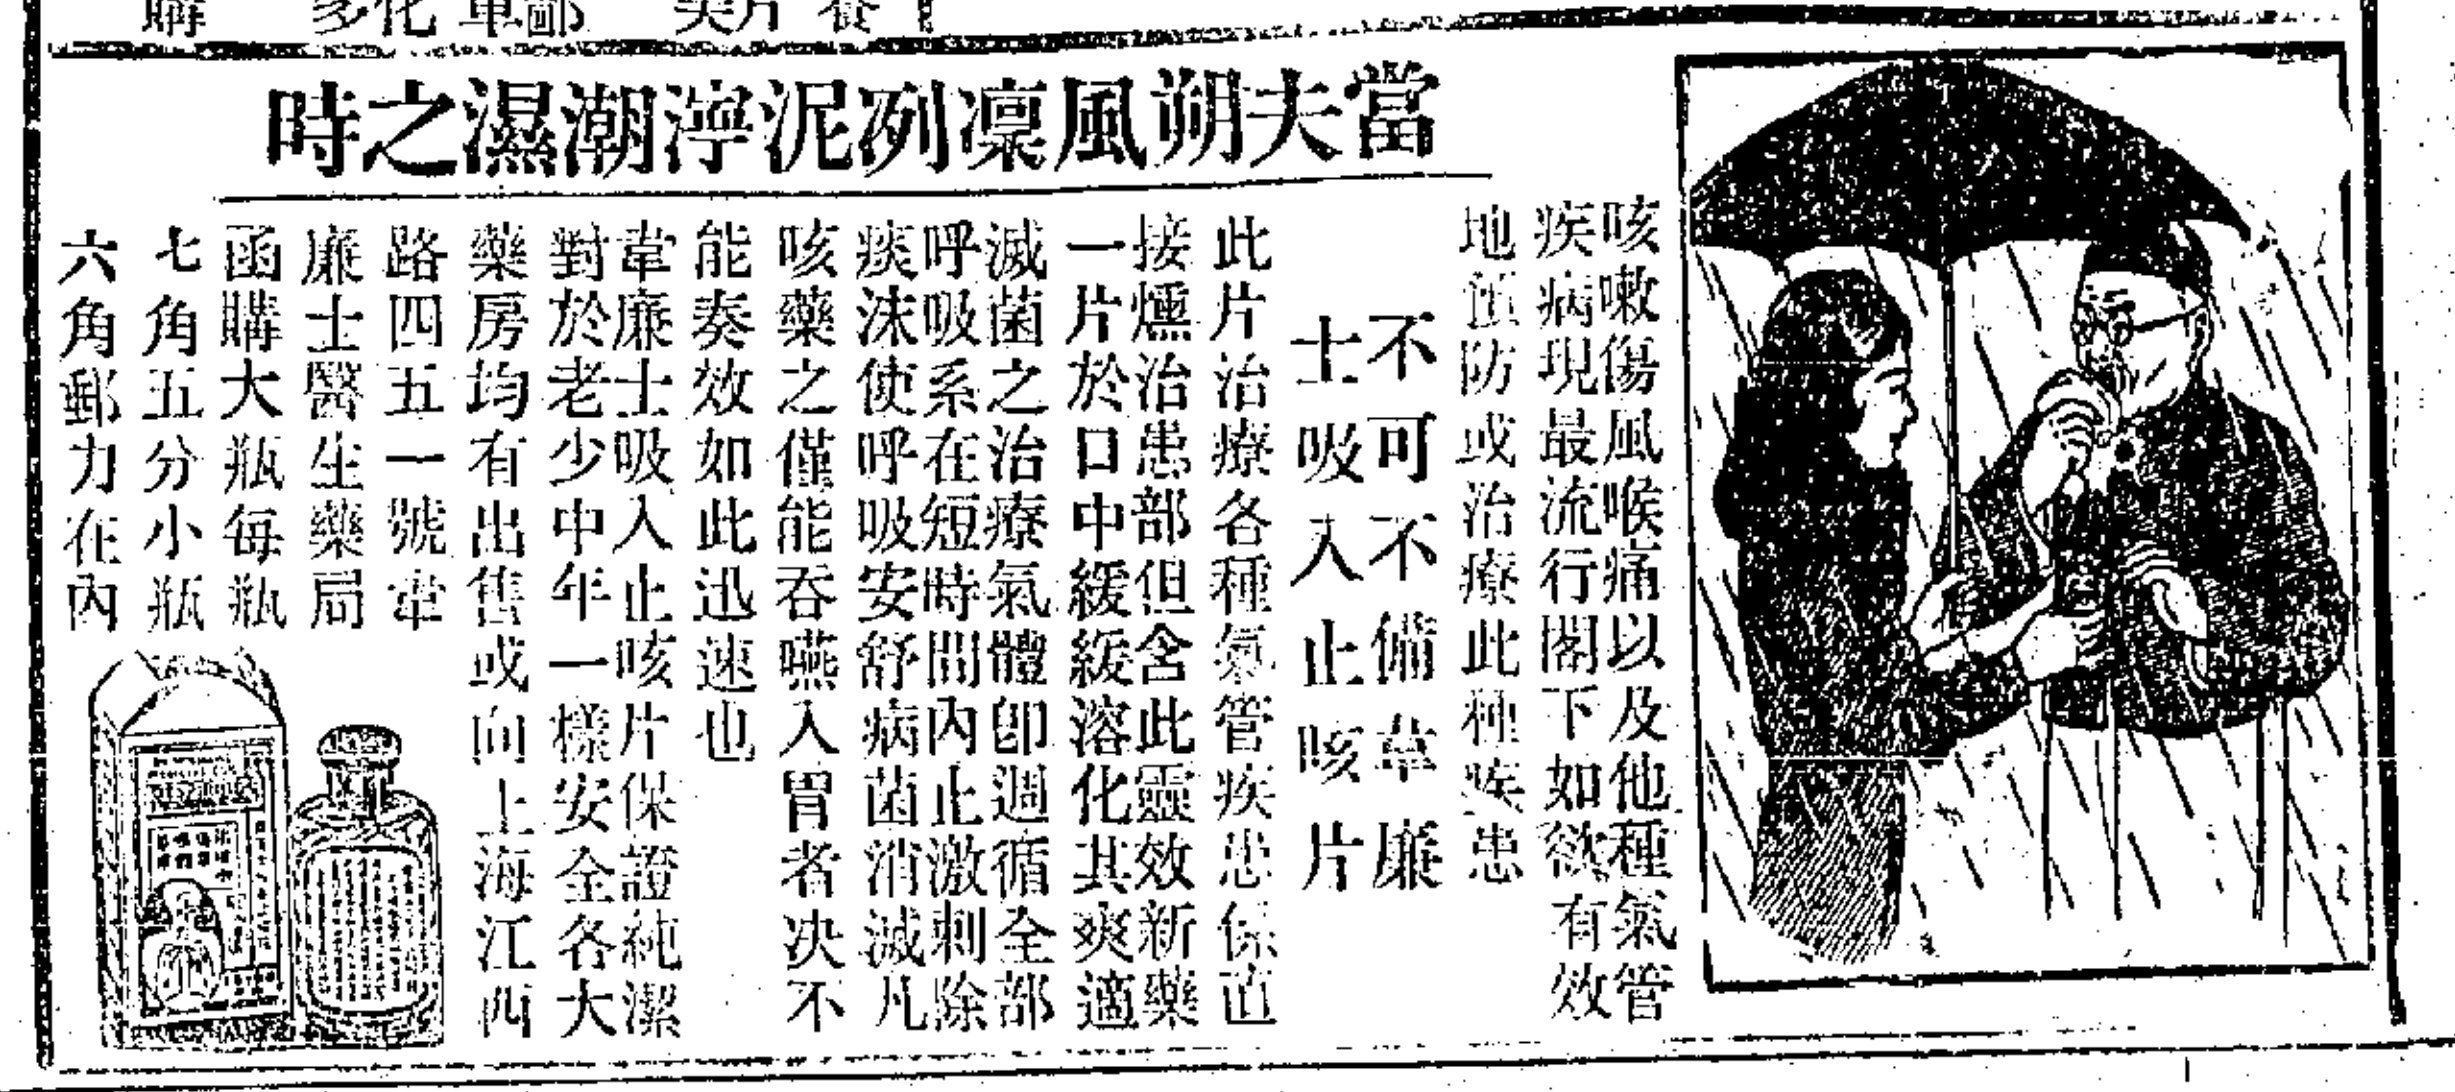 當夫朔風凜冽泥濘潮濕之時
咳嗽傷風喉痛以及他種氣管
疾病現最流行閣下如欲有效
地預防或治療此種疾患
不可不備韋廉
士吸入止咳片
此片治療各種氣管疾患係直
接燻治患部但含此靈效新藥
一片於口中緩緩溶化其爽適
滅菌之治療氣體卽週循全部
呼吸系在短時間內止激刺除
痰沫使呼吸安舒病菌消滅凡
咳藥之僅能吞嚥入胃者决不
能奏效如此迅速也
韋廉士吸入止咳片保證純潔
對於老少中年一樣安全各大
藥房均有出售或向上海江西
路四五一號韋
廉士醫生藥局
函購大瓶每瓶
七角五分小瓶
六角郵力在內